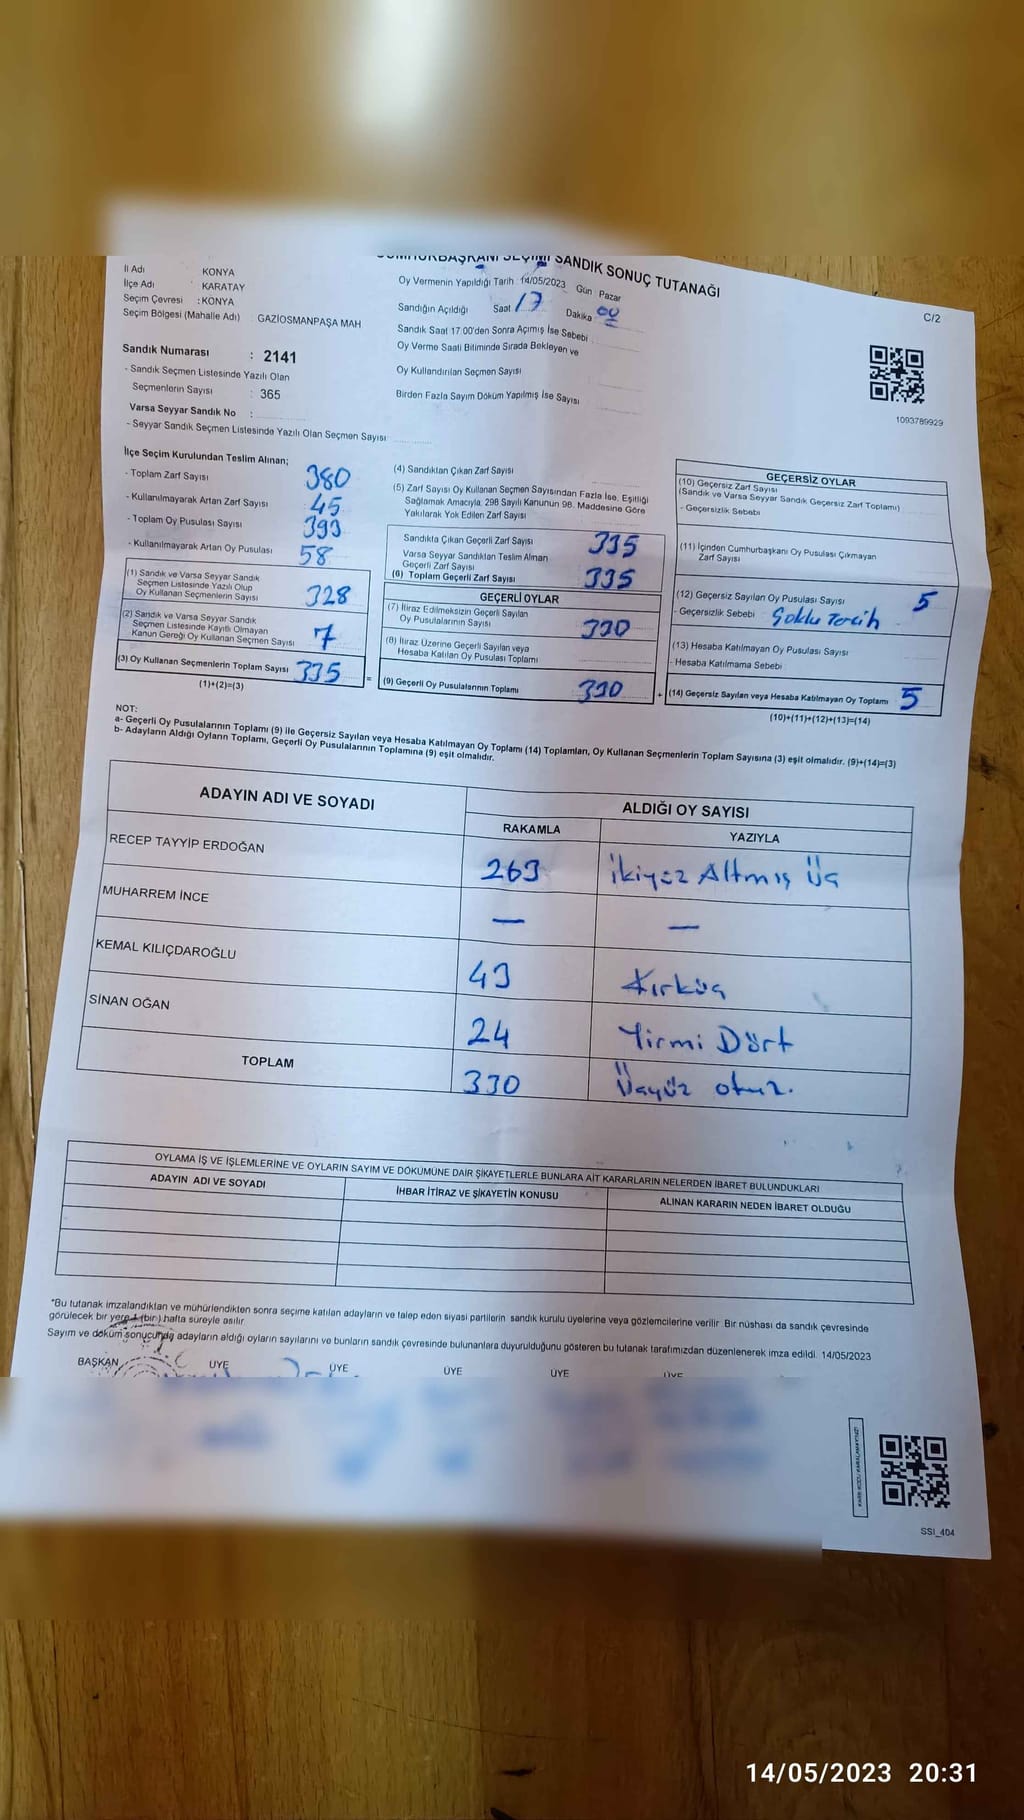 SANDIK SONUÇ TUTANAĞI
C/2
İl Adı KONYA
İlçe Adı : KARATAY
Seçim Çevresi : KONYA
Seçim Bölgesi (Mahalle Adı) GAZİOSMANPAŞA MAH
Sandık Numarası : 2141
- Sandık Seçmen Listesinde Yazılı Olan
Seçmenlerin Sayısı : 365
Varsa Seyyar Sandık No :
- Seyyar Sandık Seçmen Listesinde Yazılı Olan Seçmen Sayısı:
Oy Vermenin Yapıldığı Tarih 14/05/2023 Gün : Pazar
Sandığın Açıldığı Saat 17 Dakika 00
Sandık Saat 17:00'den Sonra Açımış İse Sebebi
Oy Verme Saati Bitiminde Sırada Bekleyen ve
Oy Kullandırılan Seçmen Sayısı
Birden Fazla Sayım Döküm Yapılmış İse Sayısı
1093789929
İlçe Seçim Kurulundan Teslim Alınan;
- Toplam Zarf Sayısı 380
- Kullanılmayarak Artan Zarf Sayısı 45
- Toplam Oy Pusulası Sayısı 393
- Kullanılmayarak Artan Oy Pusulası 58
(1) Sandık ve Varsa Seyyar Sandık
Seçmen Listesinde Yazılı Olup
Oy Kullanan Seçmenlerin Sayısı 328
(2) Sandık ve Varsa Seyyar Sandık
Seçmen Listesinde Kayıtlı Olmayan
Kanun Gereği Oy Kullanan Seçmen Sayısı 7
(3) Oy Kullanan Seçmenlerin Toplam Sayısı 335
(1)+(2)=(3)
=
(4) Sandıktan Çıkan Zarf Sayısı
(5) Zarf Sayısı Oy Kullanan Seçmen Sayısından Fazla İse, Eşitliği
Sağlamak Amacıyla, 298 Sayılı Kanunun 98. Maddesine Göre
Yakılarak Yok Edilen Zarf Sayısı
Sandıkta Çıkan Geçerli Zarf Sayısı 335
Varsa Seyyar Sandıktan Teslim Alınan
Geçerli Zarf Sayısı
(6) Toplam Geçerli Zarf Sayısı 335
GEÇERLİ OYLAR
(7) İtiraz Edilmeksizin Geçerli Sayılan
Oy Pusulalarının Sayısı 330
(8) İtiraz Üzerine Geçerli Sayılan veya
Hesaba Katılan Oy Pusulası Toplamı
(9) Geçerli Oy Pusulalarının Toplamı 330
+
GEÇERSİZ OYLAR
(10) Geçersiz Zarf Sayısı
(Sandık ve Varsa Seyyar Sandık Geçersiz Zarf Toplamı)
- Geçersizlik Sebebi
(11) İçinden Cumhurbaşkanı Oy Pusulası Çıkmayan
Zarf Sayısı
(12) Geçersiz Sayılan Oy Pusulası Sayısı 5
- Geçersizlik Sebebi Çoklu Tercih
(13) Hesaba Katılmayan Oy Pusulası Sayısı
- Hesaba Katılmama Sebebi
(14) Geçersiz Sayılan veya Hesaba Katılmayan Oy Toplamı 5
(10)+(11)+(12)+(13)=(14)
NOT:
a- Geçerli Oy Pusulalarının Toplamı (9) ile Geçersiz Sayılan veya Hesaba Katılmayan Oy Toplamı (14) Toplamları, Oy Kullanan Seçmenlerin Toplam Sayısına (3) eşit olmalıdır. (9)+(14)=(3)
b- Adayların Aldığı Oyların Toplamı, Geçerli Oy Pusulalarının Toplamına (9) eşit olmalıdır.
ADAYIN ADI VE SOYADI ALDIĞI OY SAYISI
RAKAMLA YAZIYLA
RECEP TAYYİP ERDOĞAN 263 İkiyüz Altmış Üç
MUHARREM İNCE — —
KEMAL KILIÇDAROĞLU 43 Kırküç
SİNAN OĞAN 24 Yirmi Dört
TOPLAM 330 Üçyüz otuz.
OYLAMA İŞ VE İŞLEMLERİNE VE OYLARIN SAYIM VE DÖKÜMÜNE DAİR ŞİKAYETLERLE BUNLARA AİT KARARLARIN NELERDEN İBARET BULUNDUKLARI
ADAYIN ADI VE SOYADI İHBAR İTİRAZ VE ŞİKAYETİN KONUSU ALINAN KARARIN NEDEN İBARET OLDUĞU
*Bu tutanak imzalandıktan ve mühürlendikten sonra seçime katılan adayların ve talep eden siyasi partilerin sandık kurulu üyelerine veya gözlemcilerine verilir. Bir nüshası da sandık çevresinde
görülecek bir yere 1 (bir) hafta süreyle asılır.
Sayım ve döküm sonucunda adayların aldığı oyların sayılarını ve bunların sandık çevresinde bulunanlara duyurulduğunu gösteren bu tutanak tarafımızdan düzenlenerek imza edildi. 14/05/2023
BAŞKAN ÜYE ÜYE ÜYE ÜYE ÜYE
SSI_404
14/05/2023 20:31